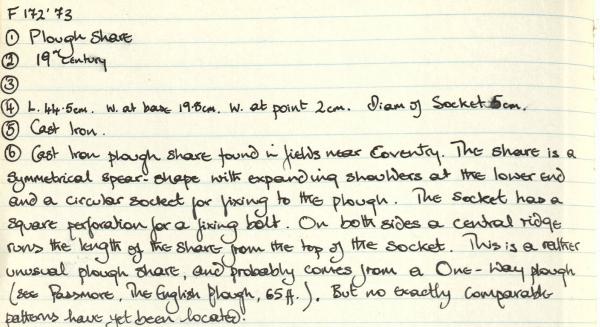 F 172'73
① Plough Share
② 19th Century
③
④ L. 44.5cm. W. at base 19.8cm. W. at point 2cm. Diam of Socket 5cm.
⑤ Cast Iron.
⑥ Cast Iron plough share found in fields near Coventry. The share is a
symmetrical spear-shape with expanding shoulders at the lower end
and a circular socket for fixing to the plough. The socket has a
square perforation for a fixing bolt. On both sides a central ridge
runs the length of the share from the top of the socket. This is a rather
unusual plough share, and probably comes from a One-Way plough
(see Passmore, The English Plough, 65ff.). But no exactly comparable
patterns have yet been located.